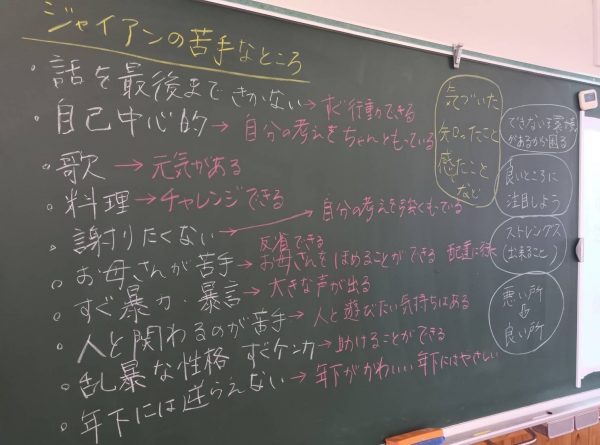 ジャイアンの苦手なところ
・話を最後まできかない→すぐ行動できる
・自己中心的→自分の考えをちゃんともっている
・歌→元気がある
・料理→チャレンジできる
・謝りたくない→自分の考えを強くもっている
反省できる
・お母さんが苦手→お母さんをほめることができる
・すぐ暴力・暴言→大きな声が出る
・人と関わるのが苦手→人と遊びたい気持ちはある
・乱暴な性格 すぐケンカ→助けることができる
・年下には逆らえない→年下がかわいい 年下にはやさしい
気づいた
知ったこと
感たこと
など
できないる裏
があるから困る
良いところに
注目しよう
ストレングス
(出来ること)
悪い所
良い所